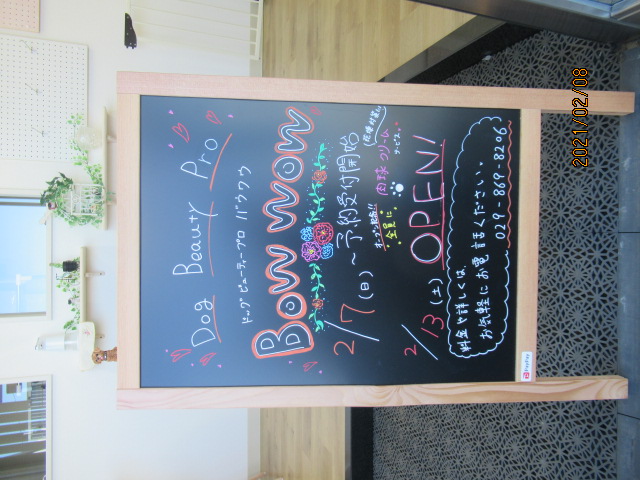 Dog Beauty Pro
ドッグビューティープロ バウワウ
Bow wow
2/7(日)~予約受付開始
オープン記念!!
全員に 肉球クリーム
(乾燥対策に
サービス。
2/13(土) OPEN!
料金や詳しくは、
お気軽にお電話ください。
029-869-8206
PayPay
2021/02/08